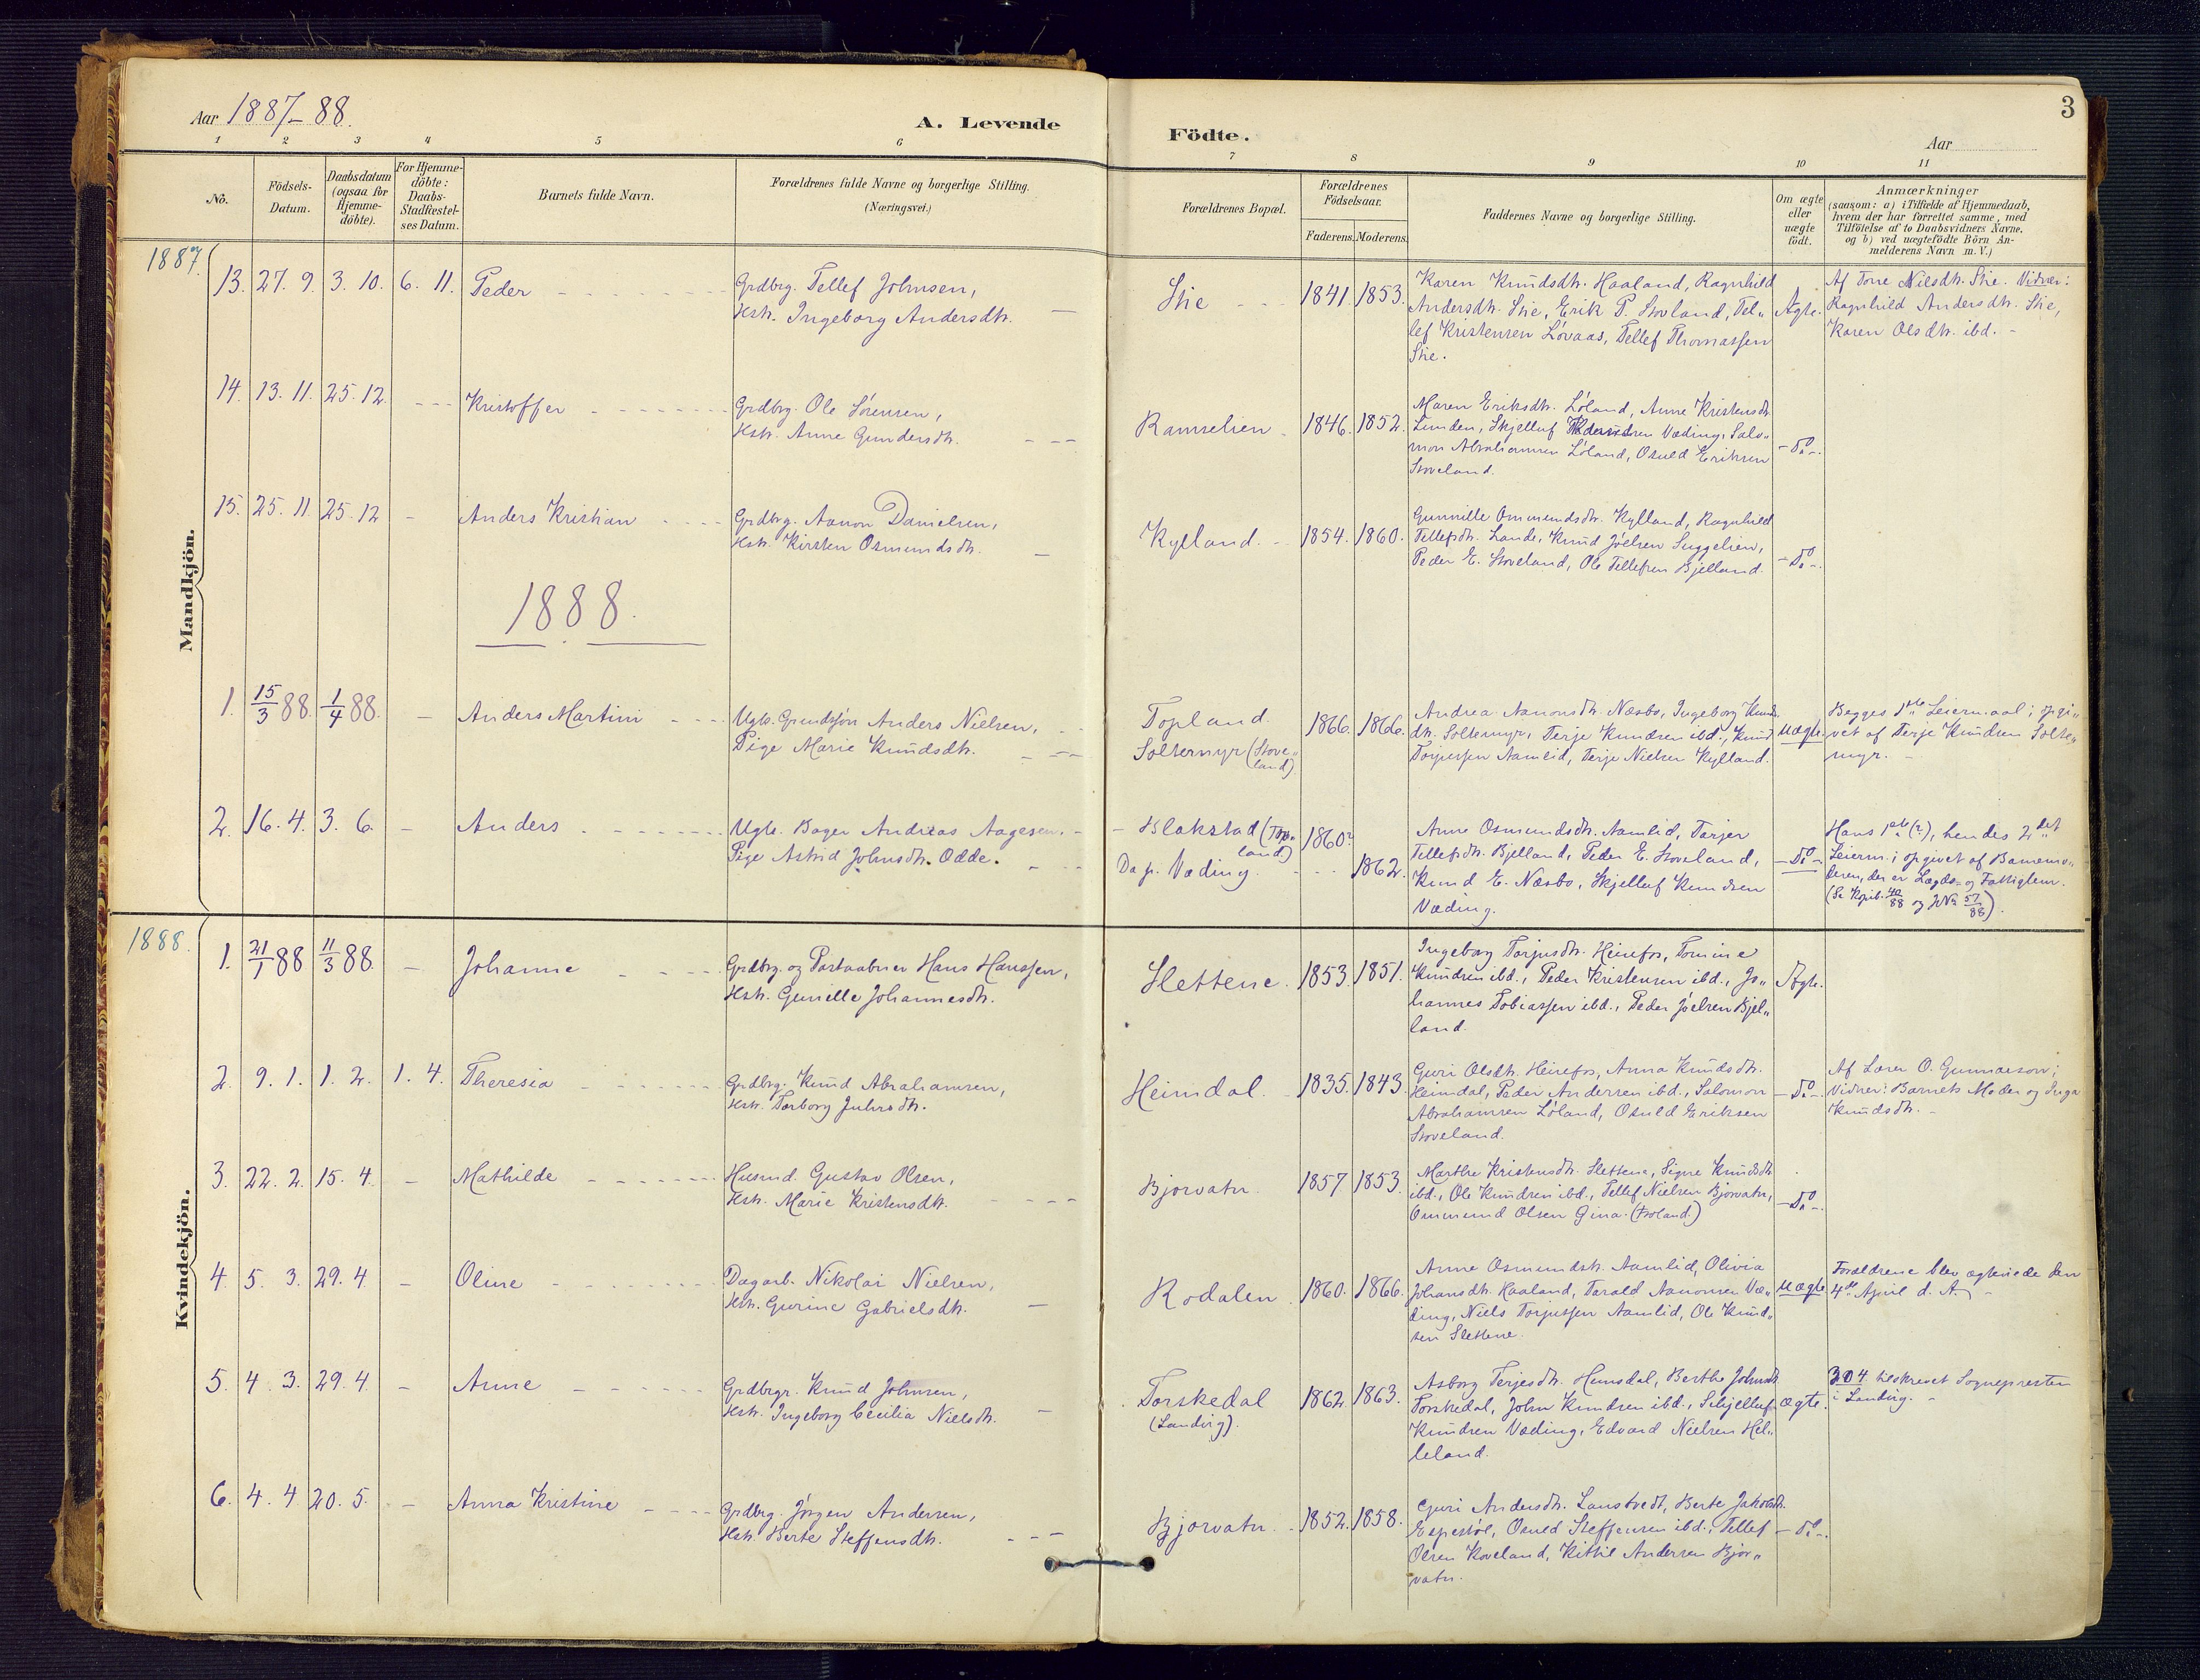 Aar 1887-88.
A. Levende
Födte.
Aar
3
1 2 3 4 5 6 7 8 9 10 11
No.
Födsels-
Datum.
Daabsdatum
(ogsaa for
Hjemme-
döbte).
For Hjemme-
döbte:
Daabs-
Stadfæstel-
ses Datum.
Barnets fulde Navn.
Forældrenes fulde Navne og borgerlige Stilling.
(Næringsvei.)
Forældrenes Bopæl.
Forældrenes
Födselsaar.
Faderens. Moderens.
Faddernes Navne og borgerlige Stilling.
Om ægte
eller
uægte
födt.
Anmærkninger
(saasom: a) i Tilfælde af Hjemmedaab,
hvem der har forrettet samme, med
Tilföielse af to Daabsvidners Navne.
og b) ved uægtefödte Börn An-
melderens Navn m. V.)
Mandkjön.
1887.
13. 27. 9. 3. 10. 6. 11. Peder
Grdbrg. Tellef Johnsen,
Hstr. Ingeborg Andersdtr.
Stie
1841. 1853.
Karen Knudsdtr. Haaland, Ragnhild
Andersdtr. Stie, Erik P. Stoveland, Tel„
lef Kristensen Løvaas, Tellef Thomassen
Stie.
Ægte.
Af Tone Nilsdtr. Stie. Vidner:
Ragnhild Andersdtr. Stie,
Karen Olsdtr. ibd. -
14. 13. 11. 25. 12. --- Kristoffer
Grdbrg. Ole Sørensen,
Hstr. Anne Gundersdtr.
Ramselien
1846. 1852.
Maren Eriksdtr. Løland, Anne Kristensdtr.
Linden, Skjelluf Væding, Salo„
mon Abrahamsen Løland, Osuld Eriksen
Stoveland.
- Do -.
15. 25. 11. 25. 12 - Anders Kristian
Grdbrg. Aanon Danielsen,
Hstr. Kirsten Osmundsdtr.
Kylland.
1854. 1860.
Gunnille Ommundsdtr. Kylland, Ragnhild
Tellefsdtr. Lande, Knud Joelsen Suggelien,
Peder E. Stoveland, Ole Tellefsen Bjelland.
- Do -.
1888.
1. 15/3 88. 1/4 88. - Anders Martin
Ugb. Grundsjøn Anders Nielsen,
Pige Marie Knudsdtr.
Topland
Soltemyr (Stove„
land)
1866. 1866.
Andrea Aanonsdtr. Næsbø, Ingeborg Knuds„
dtr. Soltemyr, Terje Knudsen ibd., Knud
Torjussen Aamlid, Terje Nielsen Kylland.
Uægte.
Begges 1ste Leiermaal; opgi„
vet af Terje Knudsen Solte„
myr. -
2. 16. 4. 3. 6. - Anders
Ugb. Bager Andreas Aagesen,
Pige Astrid Johnsdtr. Odde.
- Blakstad (Top„
land)
Da p. Væding.
1860?
1862.
Anne Osmundsdtr. Aamlid, Torjer
Tellefsdtr. Bjelland, Peder E. Stoveland,
Knud E. Næsbø, Skjelluf Knudsen
Væding.
- Do -
Hans 1ste (?), hendes 2det
Leierm.; opgivet af Barnemo„
deren, der er Lægds- og Fattiglem.
(Se Kopib. 40/88 og JNo. 57/88).
Kvindekjön.
1888.
1. 21/1 88 11/3 88. - Johanne
Grdbrg. og Postaabner Hans Hanssen,
Hstr. Gunille Johannesdtr.
Slettene.
1853. 1851.
Ingeborg Torjusdtr. Heirefos, Tomine
Knudsen ibd., Peder Kristensen ibd., Jo„
hannes Tobiassen ibd., Peder Joelsen Bjel„
land.
Ægte.
2. 9. 1. 1. 2. 1. 4. Theresia
Grdbrg. Knud Abrahamsen,
Hstr. Torborg Juhnsdtr.
Heimdal.
1835. 1843.
Guri Olsdtr. Heirefos, Anna Knudsdtr.
Heimdal, Peder Andersen ibd., Salomon
Abrahamsen Løland, Osuld Eriksen
Stoveland.
- Do -.
Af Lærer O. Gunnarson;
Vidner: Barnets Moder og Inga
Knudsdtr. -
3. 22. 2. 15. 4. - Mathilde
Husmd. Gustav Olsen,
Hstr. Marie Kristensdtr.
Bjorvatn.
1857 1853.
Marthe Kristensdtr. Slettene, Signe Knudsdtr
ibd., Ole Knudsen ibd., Tellef Nielsen Bjorvatn,
Ommund Olsen Gina. (Froland.)
- Do -.
4. 5. 3. 29. 4. - Oline
Dagarb. Nikolai Nielsen,
Hstr. Gurine Gabrielsdtr.
Rodalen
1860. 1866.
Anne Osmundsdtr. Aamlid, Olivia
Johansdtr. Haaland, Torald Aanonsen Væ„
ding, Niels Torjussen Aamlid, Ole Knud„
sen Slettene.
Uægte
Forældrene blev ægteviede den
4de April d. A. -
5. 4. 3. 29. 4. - Anne
Grdbrgr. Knud Johnsen,
Hstr. Ingeborg Cecilia Nielsdtr.
Torskedal
(Landvig).
1862. 1863.
Asborg Terjesdtr. Hunsdal, Berthe Johnsdtr
Torskedal, John Knudsen ibd., Schjelluf
Knudsen Væding, Edvard Nielsen Hel„
leland.
ægte.
30 4 tilskrevet Sognepresten
i Landvig. -
6. 4. 4. 20. 5. - Anna Kristine
Grdbrg. Jörgen Andersen,
Hstr. Berte Steffensdtr.
Bjorvatn
1852. 1858.
Guri Andersdtr. Lanstvedt, Berte Jakobsdtr.
Espestøl, Osuld Steffensen ibd., Tellef
Olsen Koveland, Kittil Andersen Bjor„
vatn.
- Do -.